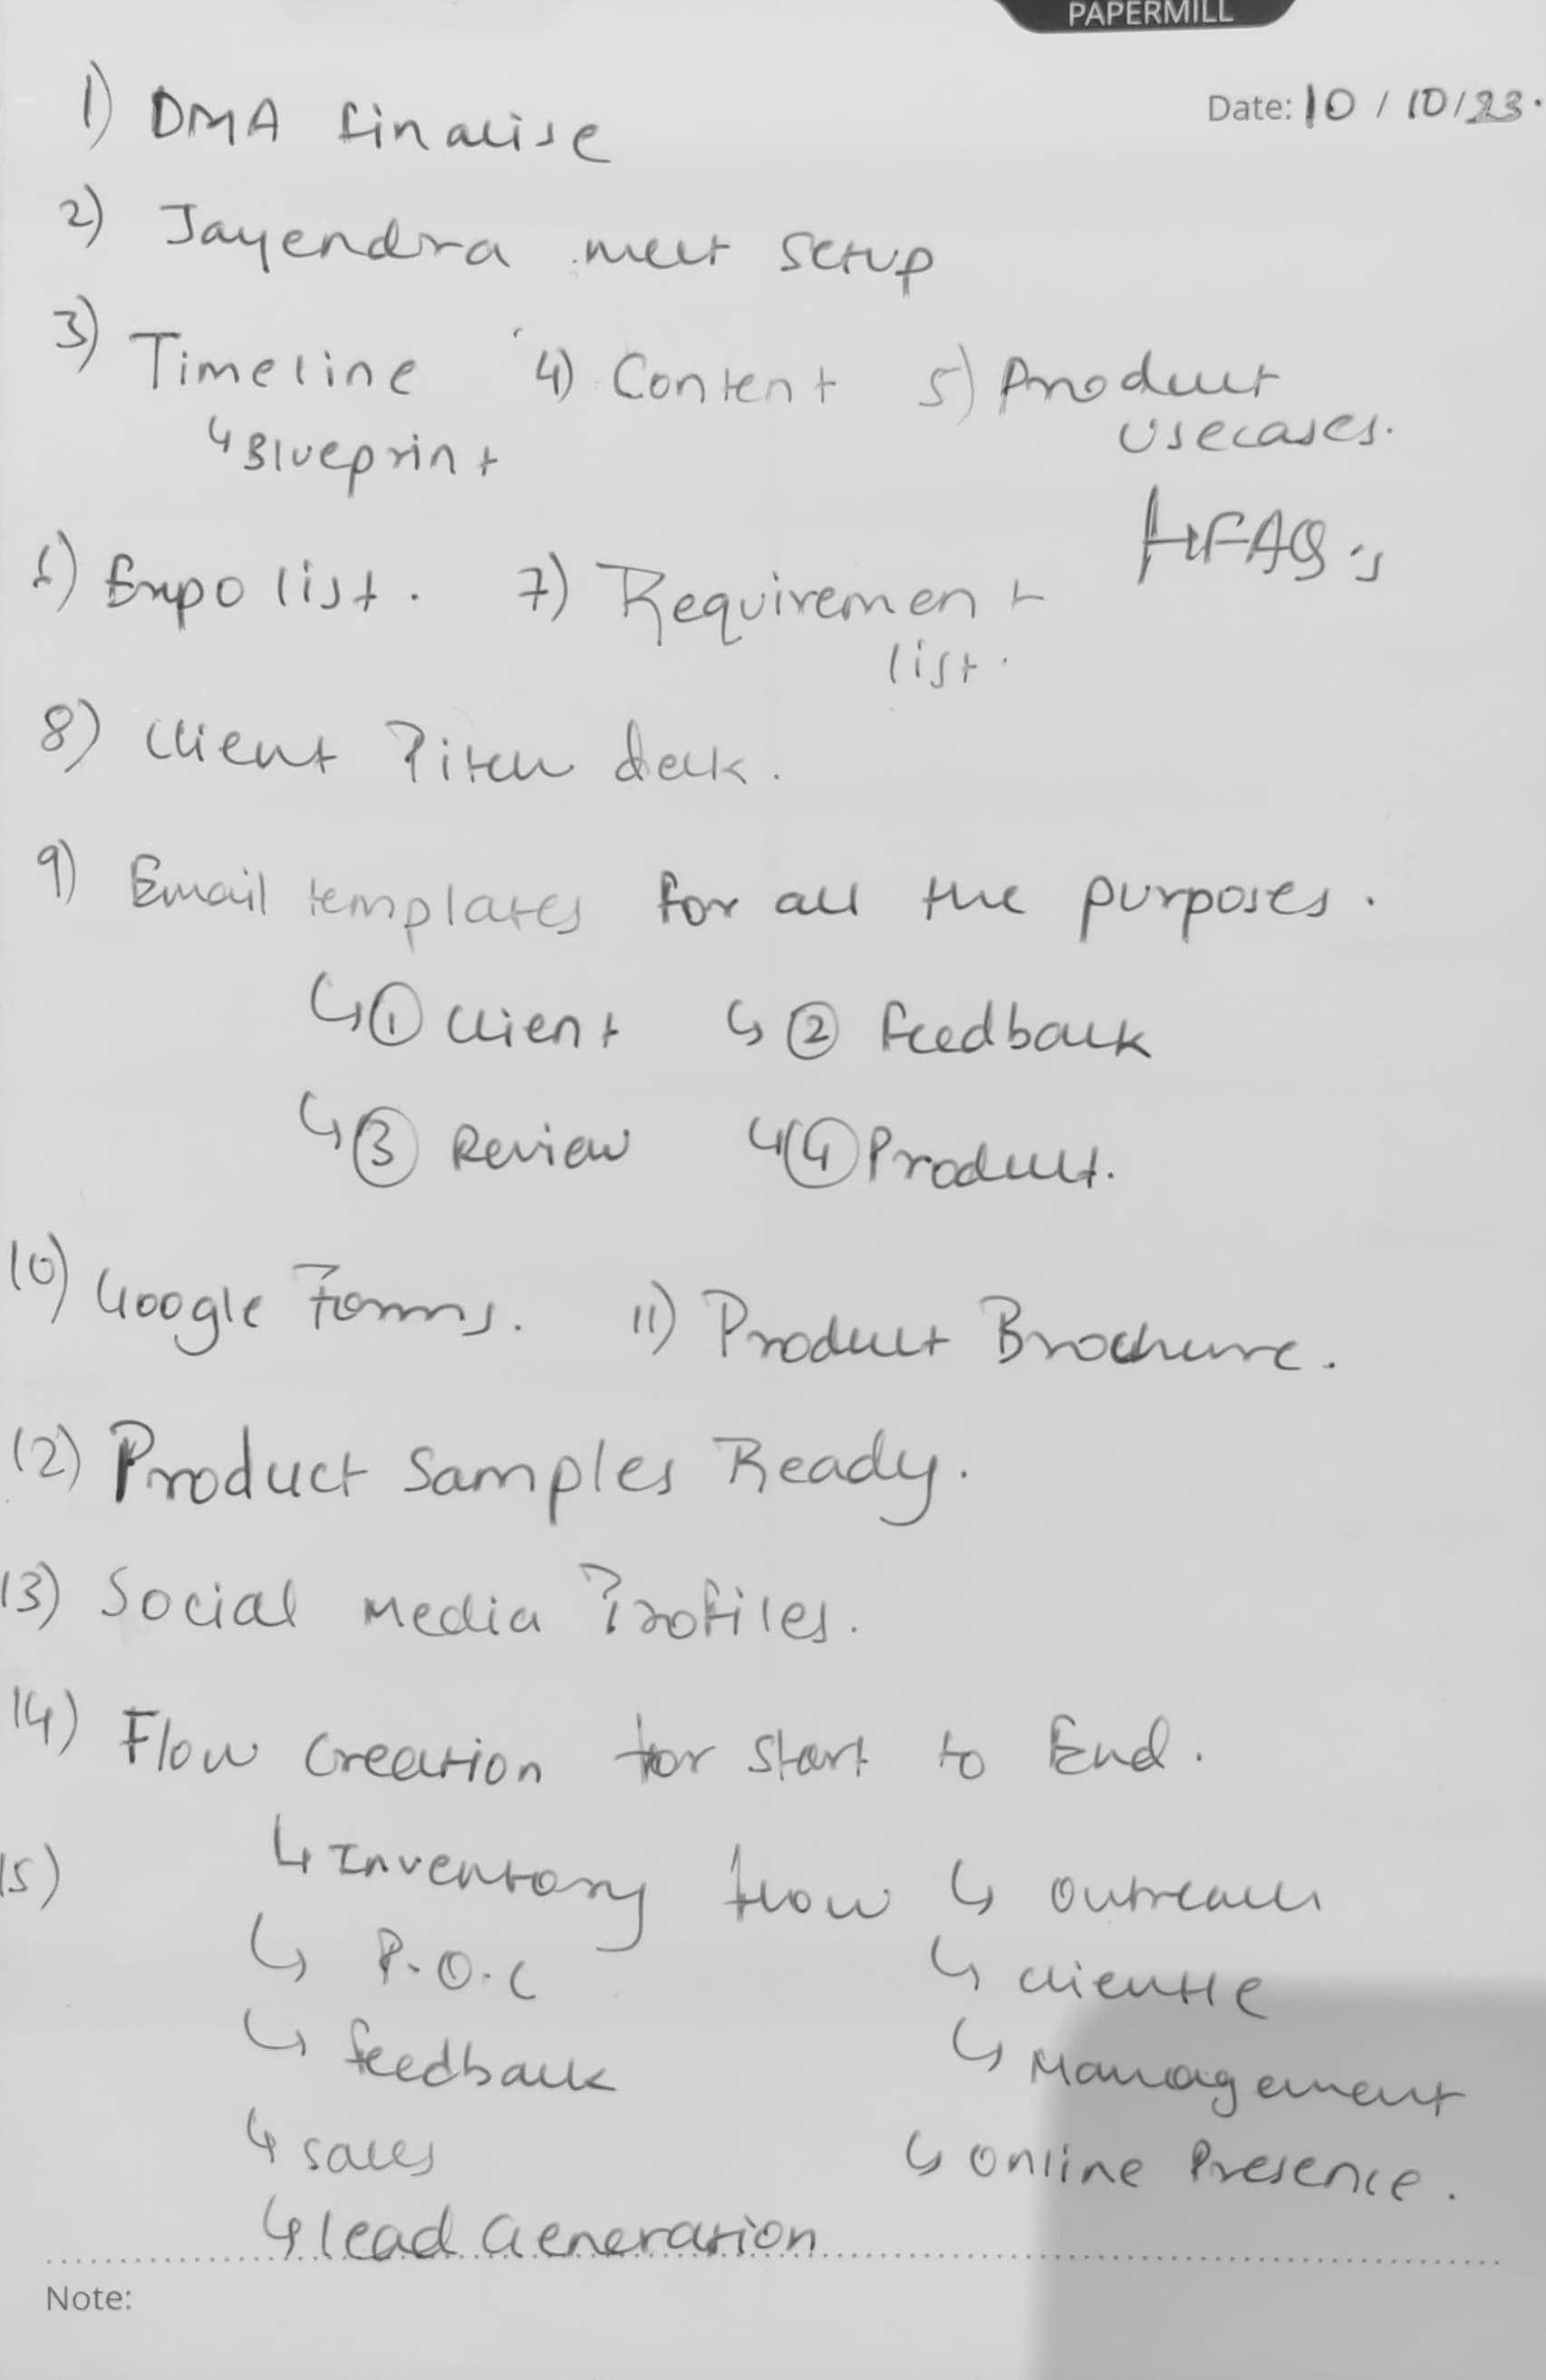 PAPERMILL
Date: 10 / 10 / 23.
1) DMA finalise
2) Jayendra meet setup
3) Timeline 4) Content 5) Product
↳ Blueprint usecases.
FAQ's
6) Expo list. 7) Requirement
list.
8) Client Pitch deck.
9) Email templates for all the purposes.
↳ ① Client ↳ ② Feedback
↳ ③ Review ↳ ④ Product.
10) Google Forms. 11) Product Brochure.
12) Product Samples Ready.
13) Social Media Profiles.
14) Flow Creation for Start to End.
15) ↳ Inventory flow ↳ Outreach
↳ P.O.C ↳ clientle
↳ feedback ↳ Management
↳ sales ↳ Online Presence.
↳ lead Generation
Note: